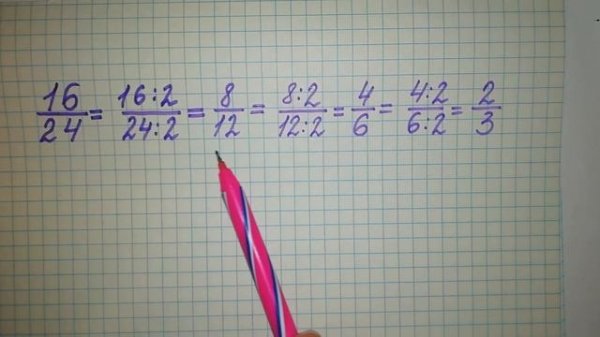 16/24 = 16:2/24:2 = 8/12 = 8:2/12:2 = 4/6 = 4:2/6:2 = 2/3